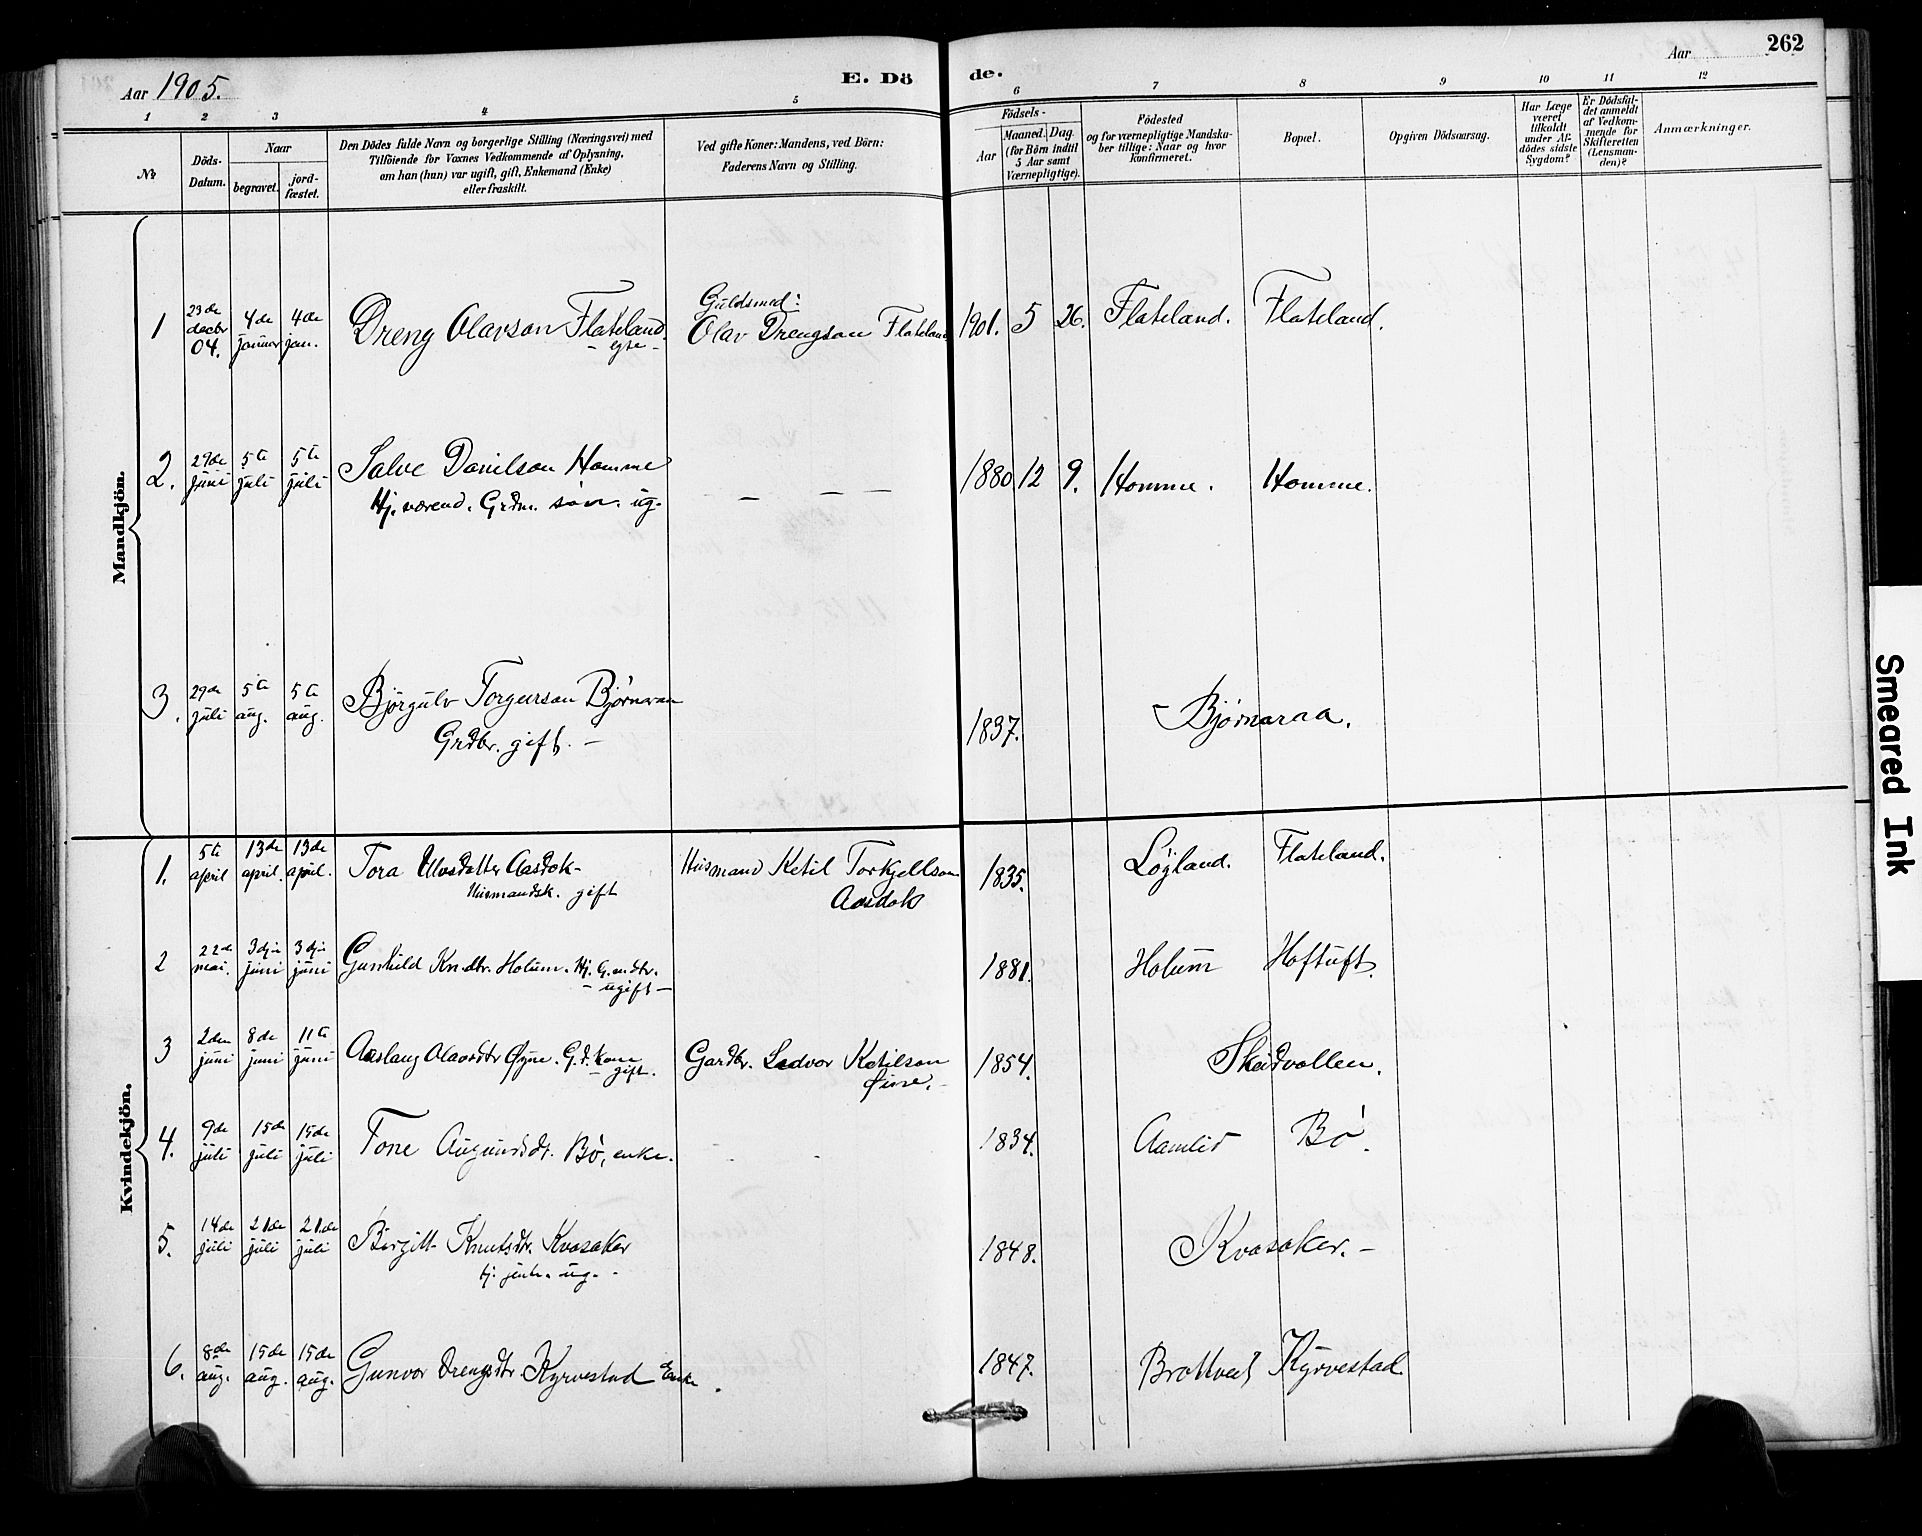 262
Aar 1905.
E. Dö de.
Aar
1 2 3 4 5 6 7 8 9 10 11 12
No
Döds-Datum.
Naar
begravet.
jord-fæstet.
Den Dödes fulde Navn og borgerlige Stilling (Næringsvei) med
Tilföiende for Voxnes Vedkommende af Oplysning,
om han (hun) var ugift, gift, Enkemand (Enke)
eller fraskilt.
Ved gifte Koner: Mandens, ved Börn:
Faderens Navn og Stilling.
Födsels-
Aar
Maaned. Dag.
(for Börn indtil
5 Aar samt
Værnepligtige).
Födested
og for værnepligtige Mandska-
ber tillige: Naar og hvor
konfirmeret.
Bopæl.
Opgiven Dödsaarsag.
Har Læge
været
tilkaldt
under Af-
dödes sidste
Sygdom?
Er Dödsfal-
det anmeldt
af Vedkom-
mende for
Skifteretten
(Lensman-
den)?
Anmærkninger.
Mandkjön.
1 23de decbr 04. 4de januar 4de jan. Dreng Olavson Flateland. - egte - Guldsmed: Olav Drengson Flateland 1901. 5 26. Flateland. Flateland.
2. 29de juni 5te juli 5te juli Salve Danilson Homme Hj. værend. Grdm. søn. ug. - - - 1880 12 9. Homme. Homme.
3. 29de juli 5te aug. 5te aug. Bjørgulv Torgerson Bjørnaraa Grdbr. gift. - 1837. - Bjørnaraa.
Kvindekjön.
1. 5te april 13de april. 13de april. Tora Olvsdatter Aasdok - Husmandsk. gift Husmand Ketil Torkjellson Aasdok 1835. Løgland. Flateland.
2 22de mai. 3dje juni 3dje juni Gunhild Kn.dtr. Holum. Hj. G.m.dtr. - ugift - 1881. Holum Hoftuft.
3 2den juni 8de juni 11te juni Aaslaug Olavsdtr Øyne. G.d. kone - gift. Gardbr. Ledvor Ketilson Øine. - 1854. Skeidvollen.
4. 9de juli 15de juli 15de juli Tone Augundsdt. Bø, enke. 1834. Aamlid Bø.
5. 14de juli 21de juli 21de juli Birgitt Knutsdtr. Kvasaker hj. jente. ug. - 1848. Kvasaker. -
6. 8de aug. 15de aug. 15de aug. Gunvor Drengsdtr. Kyrvestad Enke. 1847. Brottveit Kyrvestad
Smeared Ink